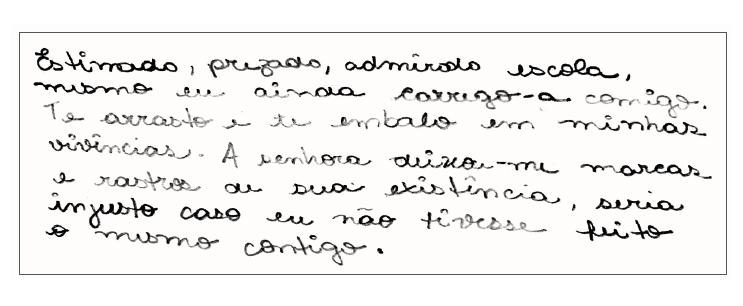 Estimado, prezado, admirado escola,
mesmo eu ainda carrego-a comigo.
Te arrasto e te embalo em minhas
vivências. A senhora deixou-me marcas
e rastros de sua existência, seria
injusto caso eu não tivesse feito
o mesmo contigo.